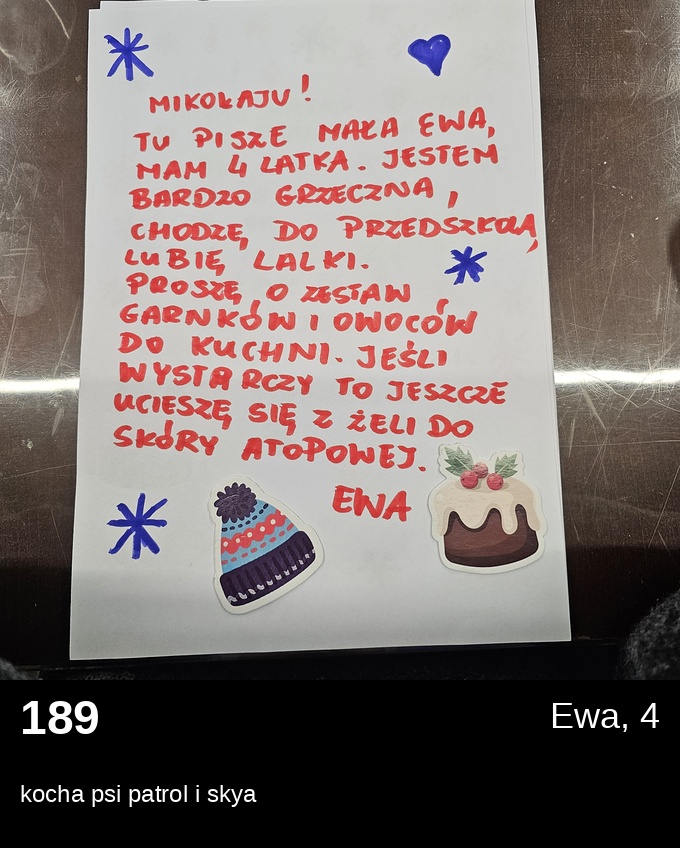 MIKOŁAJU!
TU PISZE MAŁA EWA,
MAM 4 LATKA. JESTEM
BARDZO GRZECZNA,
CHODZĘ DO PRZEDSZKOLA,
LUBIĘ LALKI.
PROSZĘ O ZESTAW
GARNKÓW I OWOCÓW
DO KUCHNI. JEŚLI
WYSTARCZY TO JESZCZE
UCIESZĘ SIĘ Z ŻELI DO
SKÓRY ATOPOWEJ.
EWA
189
Ewa, 4
kocha psi patrol i skya